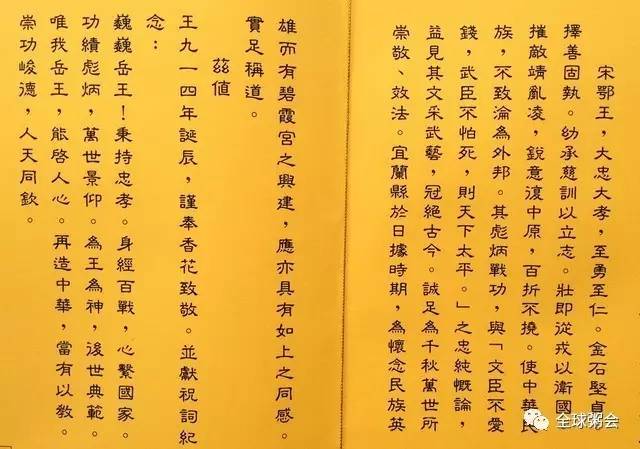 宋鄂王，大忠大孝，至勇至仁。金石堅貞
擇善固執。幼承慈訓以立志。壯即從戎以衛國
摧敵靖亂凌，銳意復中原，百折不撓。使中華民
族，不致淪為外邦。其彪炳戰功，與「文臣不愛
錢，武臣不怕死，則天下太平。」之忠純慨論，
益見其文采武藝，冠絕古今。誠足為千秋萬世所
崇敬、效法。宜蘭縣於日據時期，為懷念民族英
雄而有碧霞宮之興建，應亦具有如上之同感。
實足稱道。
茲值
王九一四年誕辰，謹奉香花致敬。並獻祝詞紀
念：
巍巍岳王！秉持忠孝。身經百戰，心繫國家。
功績彪炳，萬世景仰。為王為神，後世典範。
唯我岳王，能啓人心。再造中華，當有以教。
崇功峻德，人天同欽。
全球粥会